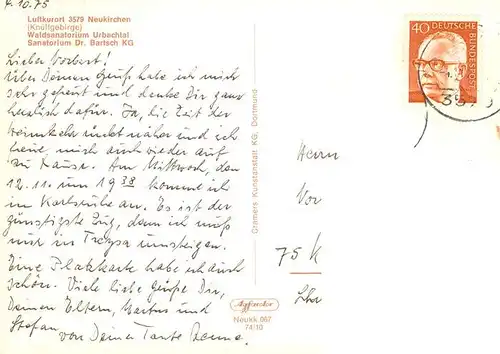 4.10.75
Luftkurort 3579 Neukirchen
(Knüllgebirge)
Waldsanatorium Urbachtal
Sanatorium Dr. Bartsch KG
Lieber Norbert!
Über Deinen Gruß habe ich mich
sehr gefreut und danke Dir ganz
herzlich dafür. Ja, die Zeit der
Heimkehr rückt näher und ich
freue mich auch wieder auf
zu Hause. Am Mittwoch, den
12.11. um 19 38 komme ich
in Karlsruhe an. Es ist der
günstigste Zug, denn ich muß
nur in Treysa umsteigen.
Eine Platzkarte habe ich auch
schon. Viele liebe Grüße Dir,
Deinen Eltern, Markus und
Stefan
von Deiner Tante
Cramers Kunstanstalt KG, Dortmund
Neukk 067
74/10
40
DEUTSCHE
BUNDESPOST
Herrn
75 K